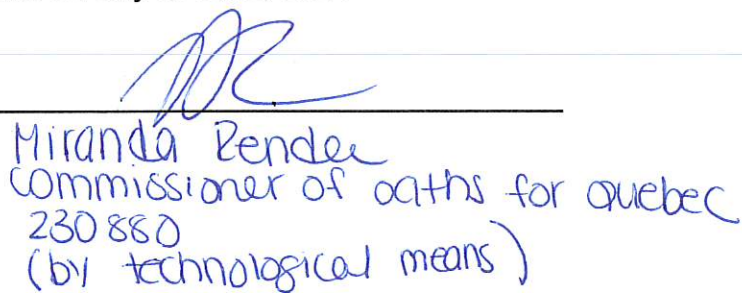 Miranda Render
commissioner of oaths for quebec
230 880
(by technological means)